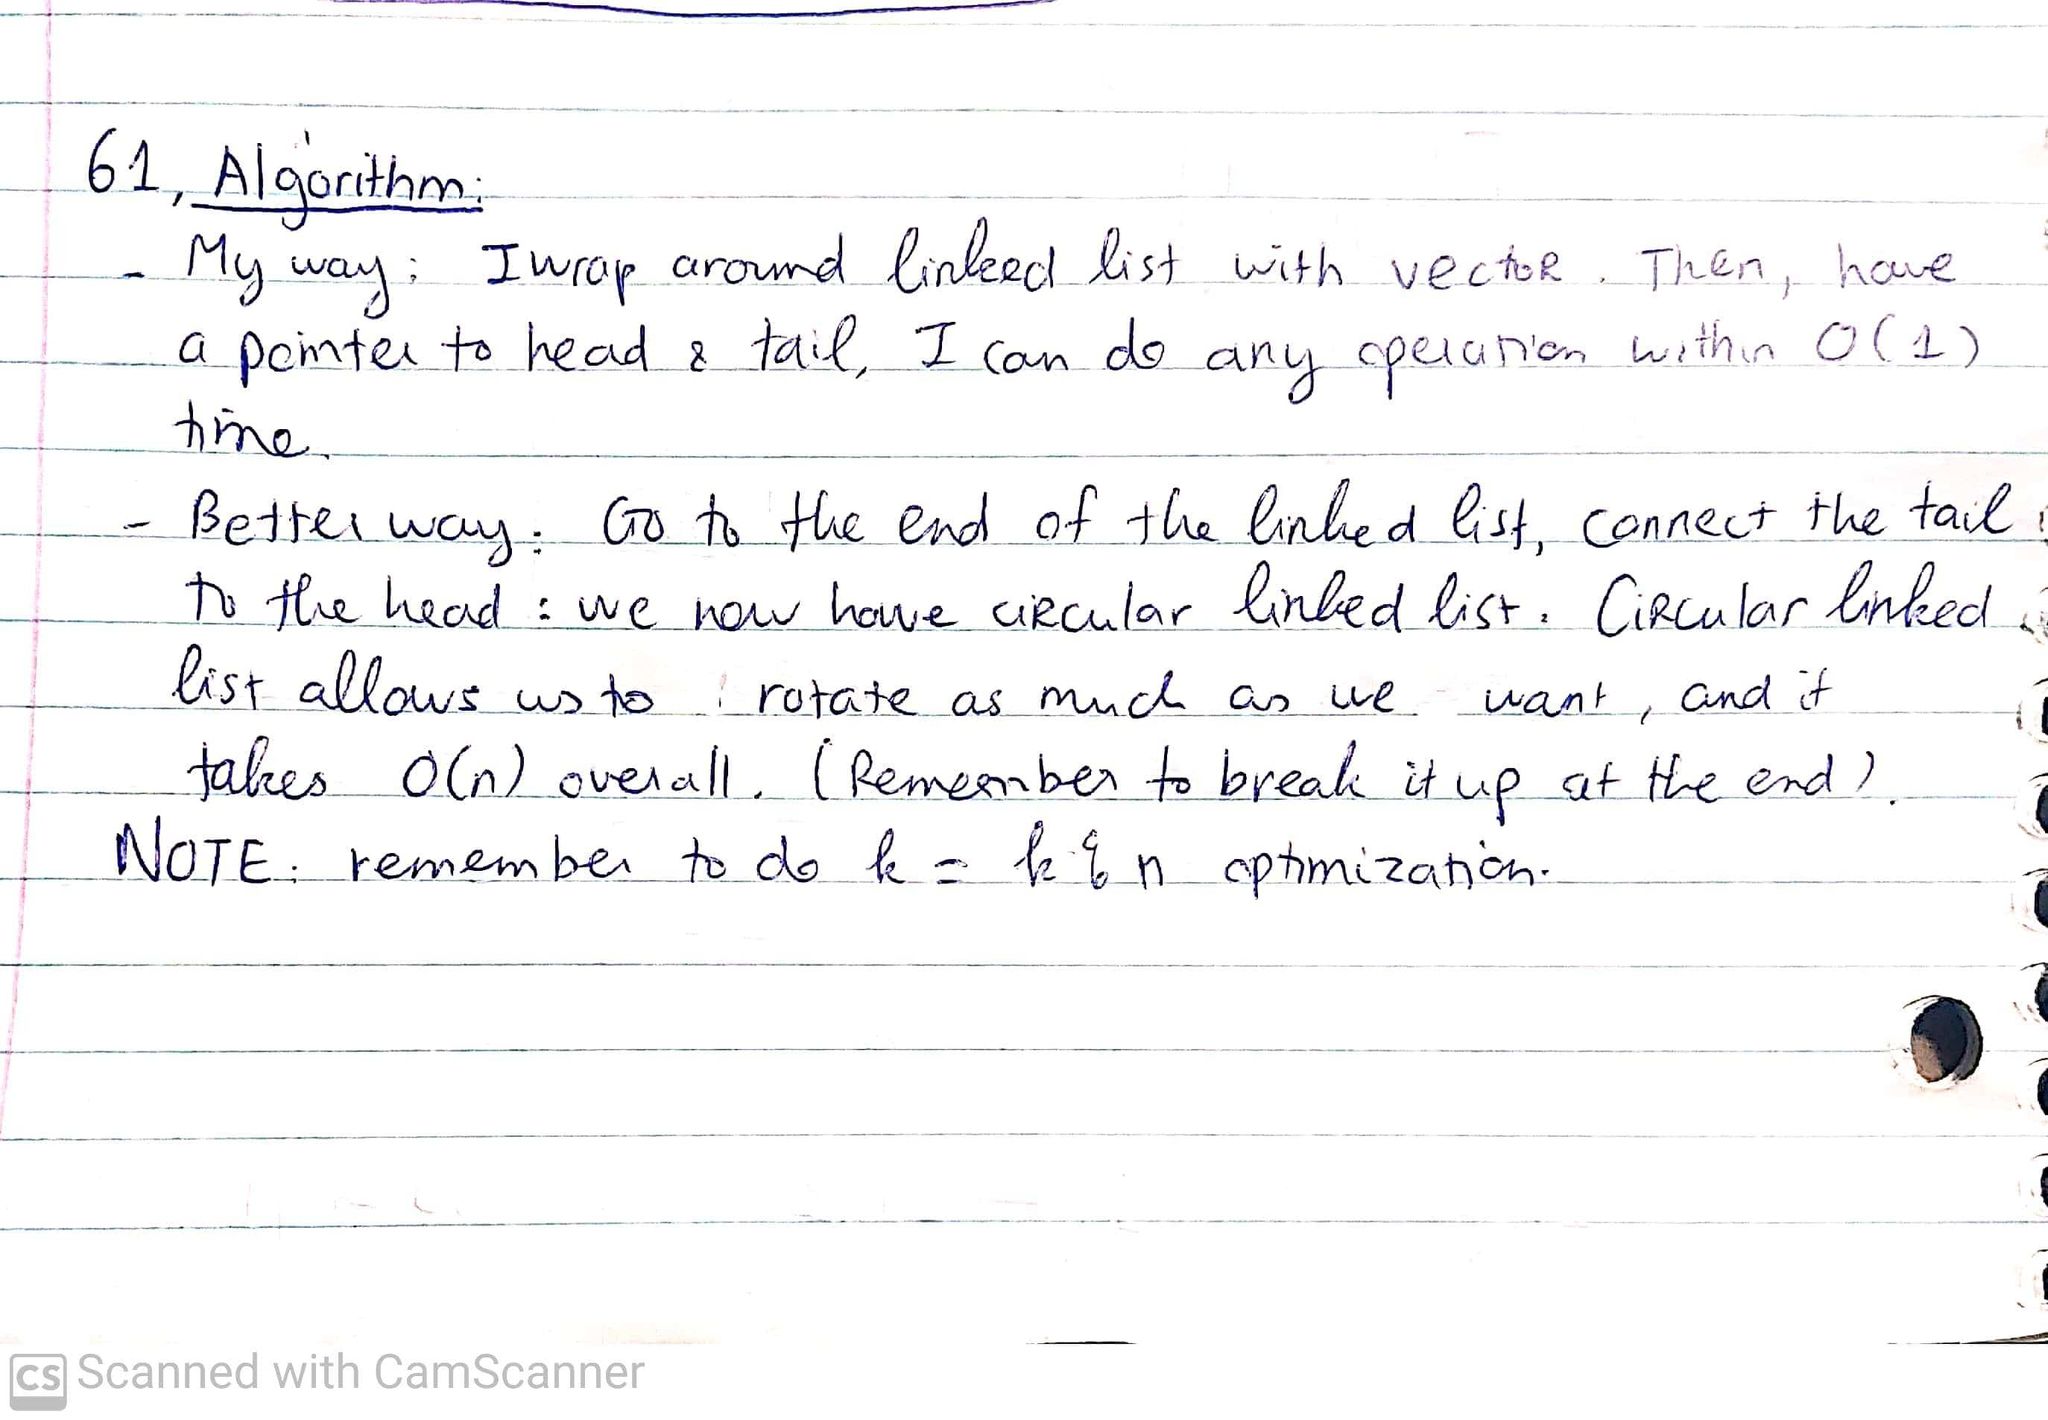 61, Algorithm:
- My way: I wrap around linked list with vector. Then, have
a pointer to head & tail, I can do any operation within O(1)
time.
- Better way: Go to the end of the linked list, connect the tail
to the head : we now have circular linked list. Circular linked
list allows us to rotate as much as we want, and it
takes O(n) overall. (Remember to break it up at the end).
NOTE: remember to do k = k % n optimization.
CS Scanned with CamScanner